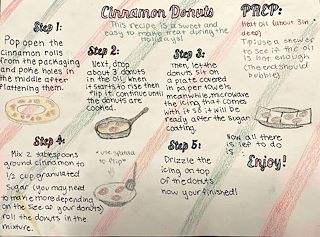 Cinnamon Donuts
This recipe is a sweet and
easy to make treat during the
holidays!
Step 1:
Pop open the
cinnamon rolls
from the packaging
and poke holes in
the middle after
flattening them.
Step 2:
Next, drop
about 3 donuts
in the oil when
it starts to rise then
flip it continue until
the donuts are
cooked.
* use spatula
to flip *
Step 3:
Then, let the
donuts sit on
a plate covered
in paper towels
meanwhile, microwave
the icing that comes
with it so it will be
ready after the sugar
coating.
PREP:
Heat oil (about 3in
deep)
Tip: use a skewer
to see if the oil
is hot enough
(the end should
bubble)
Step 4:
Mix 2 tablespoons
ground cinnamon to
1/2 cup granulated
sugar (you may need
to make more depending
on the size of your donuts)
roll the donuts in the
mixture.
Step 5:
Drizzle the
icing on top
of the donuts
now your finished!
Now all there
is left to do
is
Enjoy!